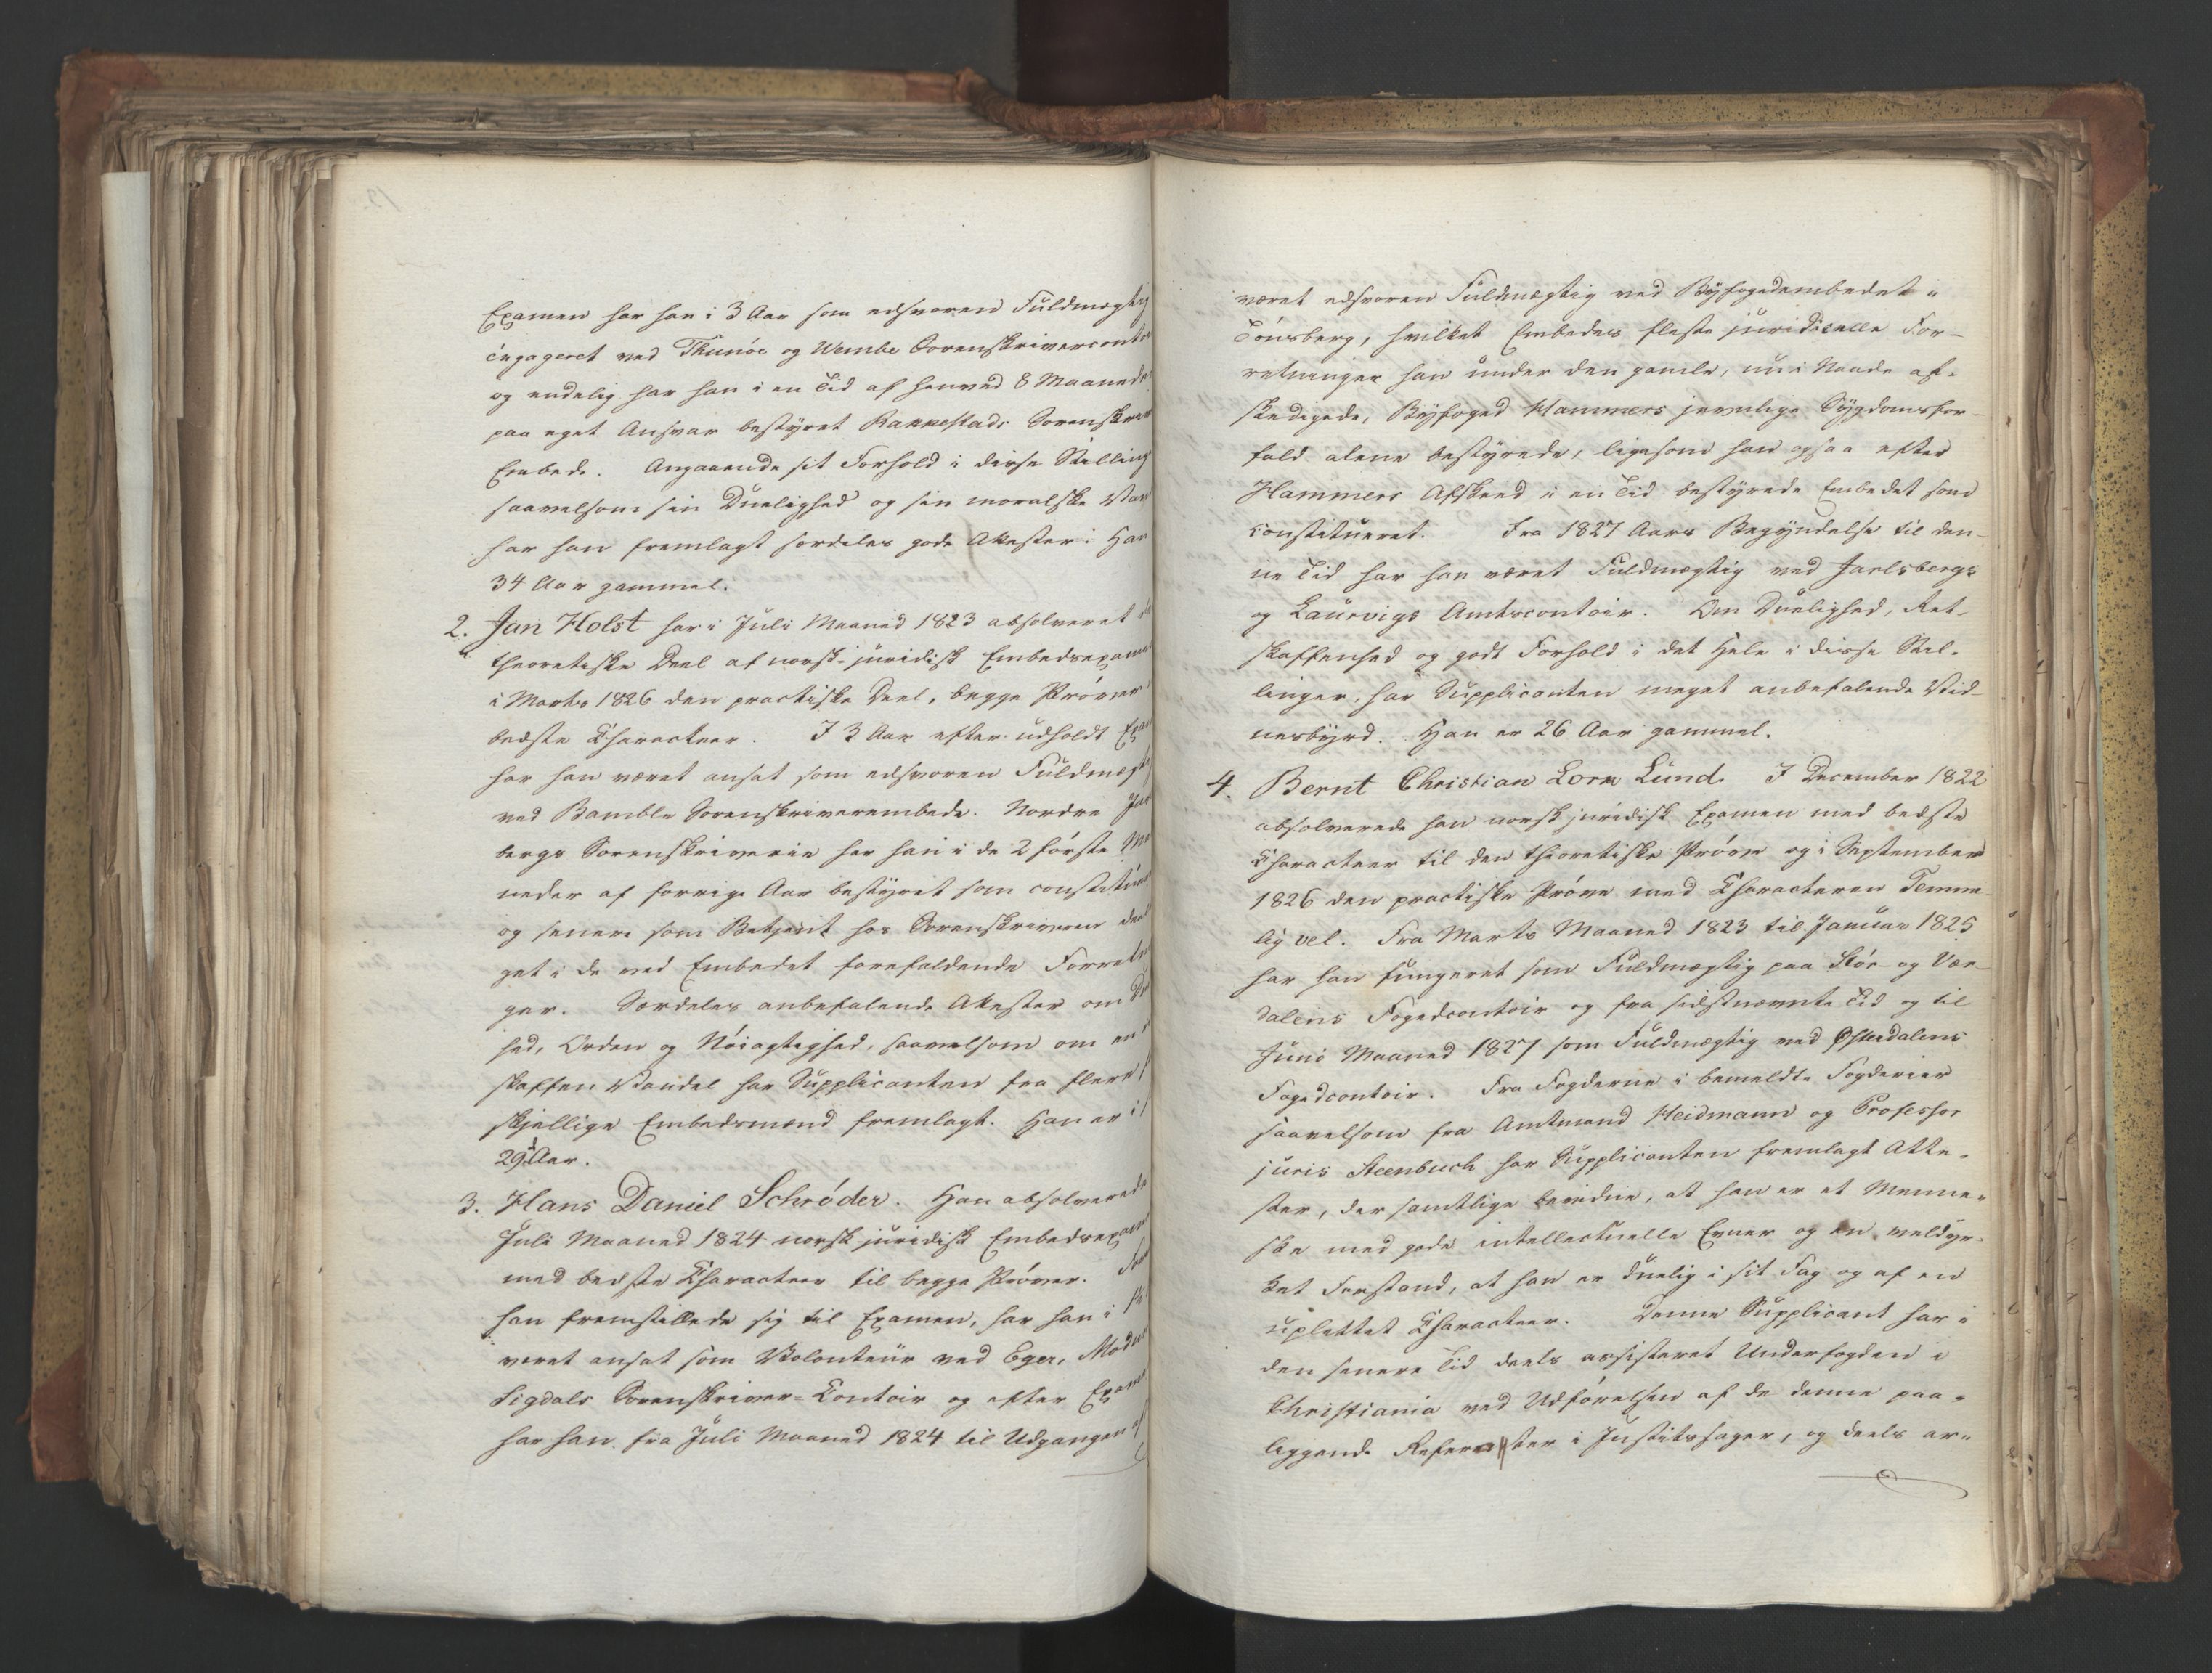 Examen har han i 3 Aar som edsvoren Fuldmægtig
engageret ved Thunøe og Wembe Sorenskrivercontoi
og endelig har han i en Tid af henved 8 Maaneder
paa eget Ansvar bestyret Rakkestads Sorenskriver
Embede. Angaaende sit Forhold i disse Stilling
saavelsom sin Duelighed og sin moralske Van
har han fremlagt særdeles gode Attester. Han
34 Aar gammel.
2. Jan Holst har i Juli Maaned 1823 absolveret de
theoretiske Deel af norsk-juridisk Embedsexame
i Marts 1826 den practiske Deel, begge Prøver
bedste Characteer. I 3 Aar efter udholdt Exam
har han været ansat som edsvoren Fuldmægti
ved Bamble Sorenskriverembede. Nordre Jar
bergs Sorenskriverie har han i de 2 første Ma
neder af forrige Aar bestyret som constitueret
og senere som Betjent hos Sorenskriveren deel
get i de ved Embedet forefaldende Forretn
ger. Særdeles anbefalende Attester om Du
hed, Orden og Nøiagtighed, saavelsom om en r
skaffen Vandel har Supplicanten fra flere f
skjellige Embedsmænd fremlagt. Han er i s
29d Aar.
3. Hans Daniel Schrøder. Han absolverede
Juli Maaned 1824 norsk juridisk Embedsexam
med bedste Characteer til begge Prøver. Før
han fremstillede sig til Examen, har han i 1½
været ansat som Volonteur ved Eger, Modum
Sigdals Sorenskriver-Contoir og efter Exame
har han fra Juli Maaned 1824 til Udgangen af
været edsvoren Fuldmægtig ved Byfogedembedet i
Tønsberg, hvilket Embedes fleste juridicelle For-
retninger han under den gamle, nu i Naade af-
skedigede, Byfoged Hammers jevnlige Sygdomsfor-
fald alene bestyrede, ligesom han ogsaa efter
Hammers Afskeed i en Tid bestyrede Embedet som
constitueret. Fra 1827 Aars Begyndelse til den-
ne Tid har han været Fuldmægtig ved Jarlsbergs
og Laurvigs Amtscontoir. Om Duelighed, Ret-
skaffenhed og godt Forhold i det Hele i disse Stil-
linger, har Supplicanten meget anbefalende Vid-
nesbyrd. Han er 26 Aar gammel.
4. Bernt Christian Lorn Lund. I December 1822
absolverede han norsk juridisk Examen med bedste
Characteer til den theoretiske Prøve og i September
1826 den practiske Prøve med Characteren Temme-
lig vel. Fra Marts Maaned 1823 til Januar 1825
har han fungeret som Fuldmægtig paa Stør- og Vær-
dalens Fogedcontoir og fra sidstnævnte Tid og til
Juni Maaned 1827 som Fuldmægtig ved Østerdalens
Fogedcontoir. Fra Fogderne i bemeldte Fogderier
saavelsom fra Amtmand Heidmann og Professor
juris Steenbuch har Supplicanten fremlagt Atte-
ster, der samtlige bevidne, at han er et Menne-
ske med gode intellectuelle Evner og en veldyr-
ket Forstand, at han er duelig i sit Fag og af en
uplettet Characteer. Denne Supplicant har i
den senere Tid deels assisteret Underfogden i
Christiania ved Udførelsen af de denne paa-
liggende i Justitssager, og deels ar-